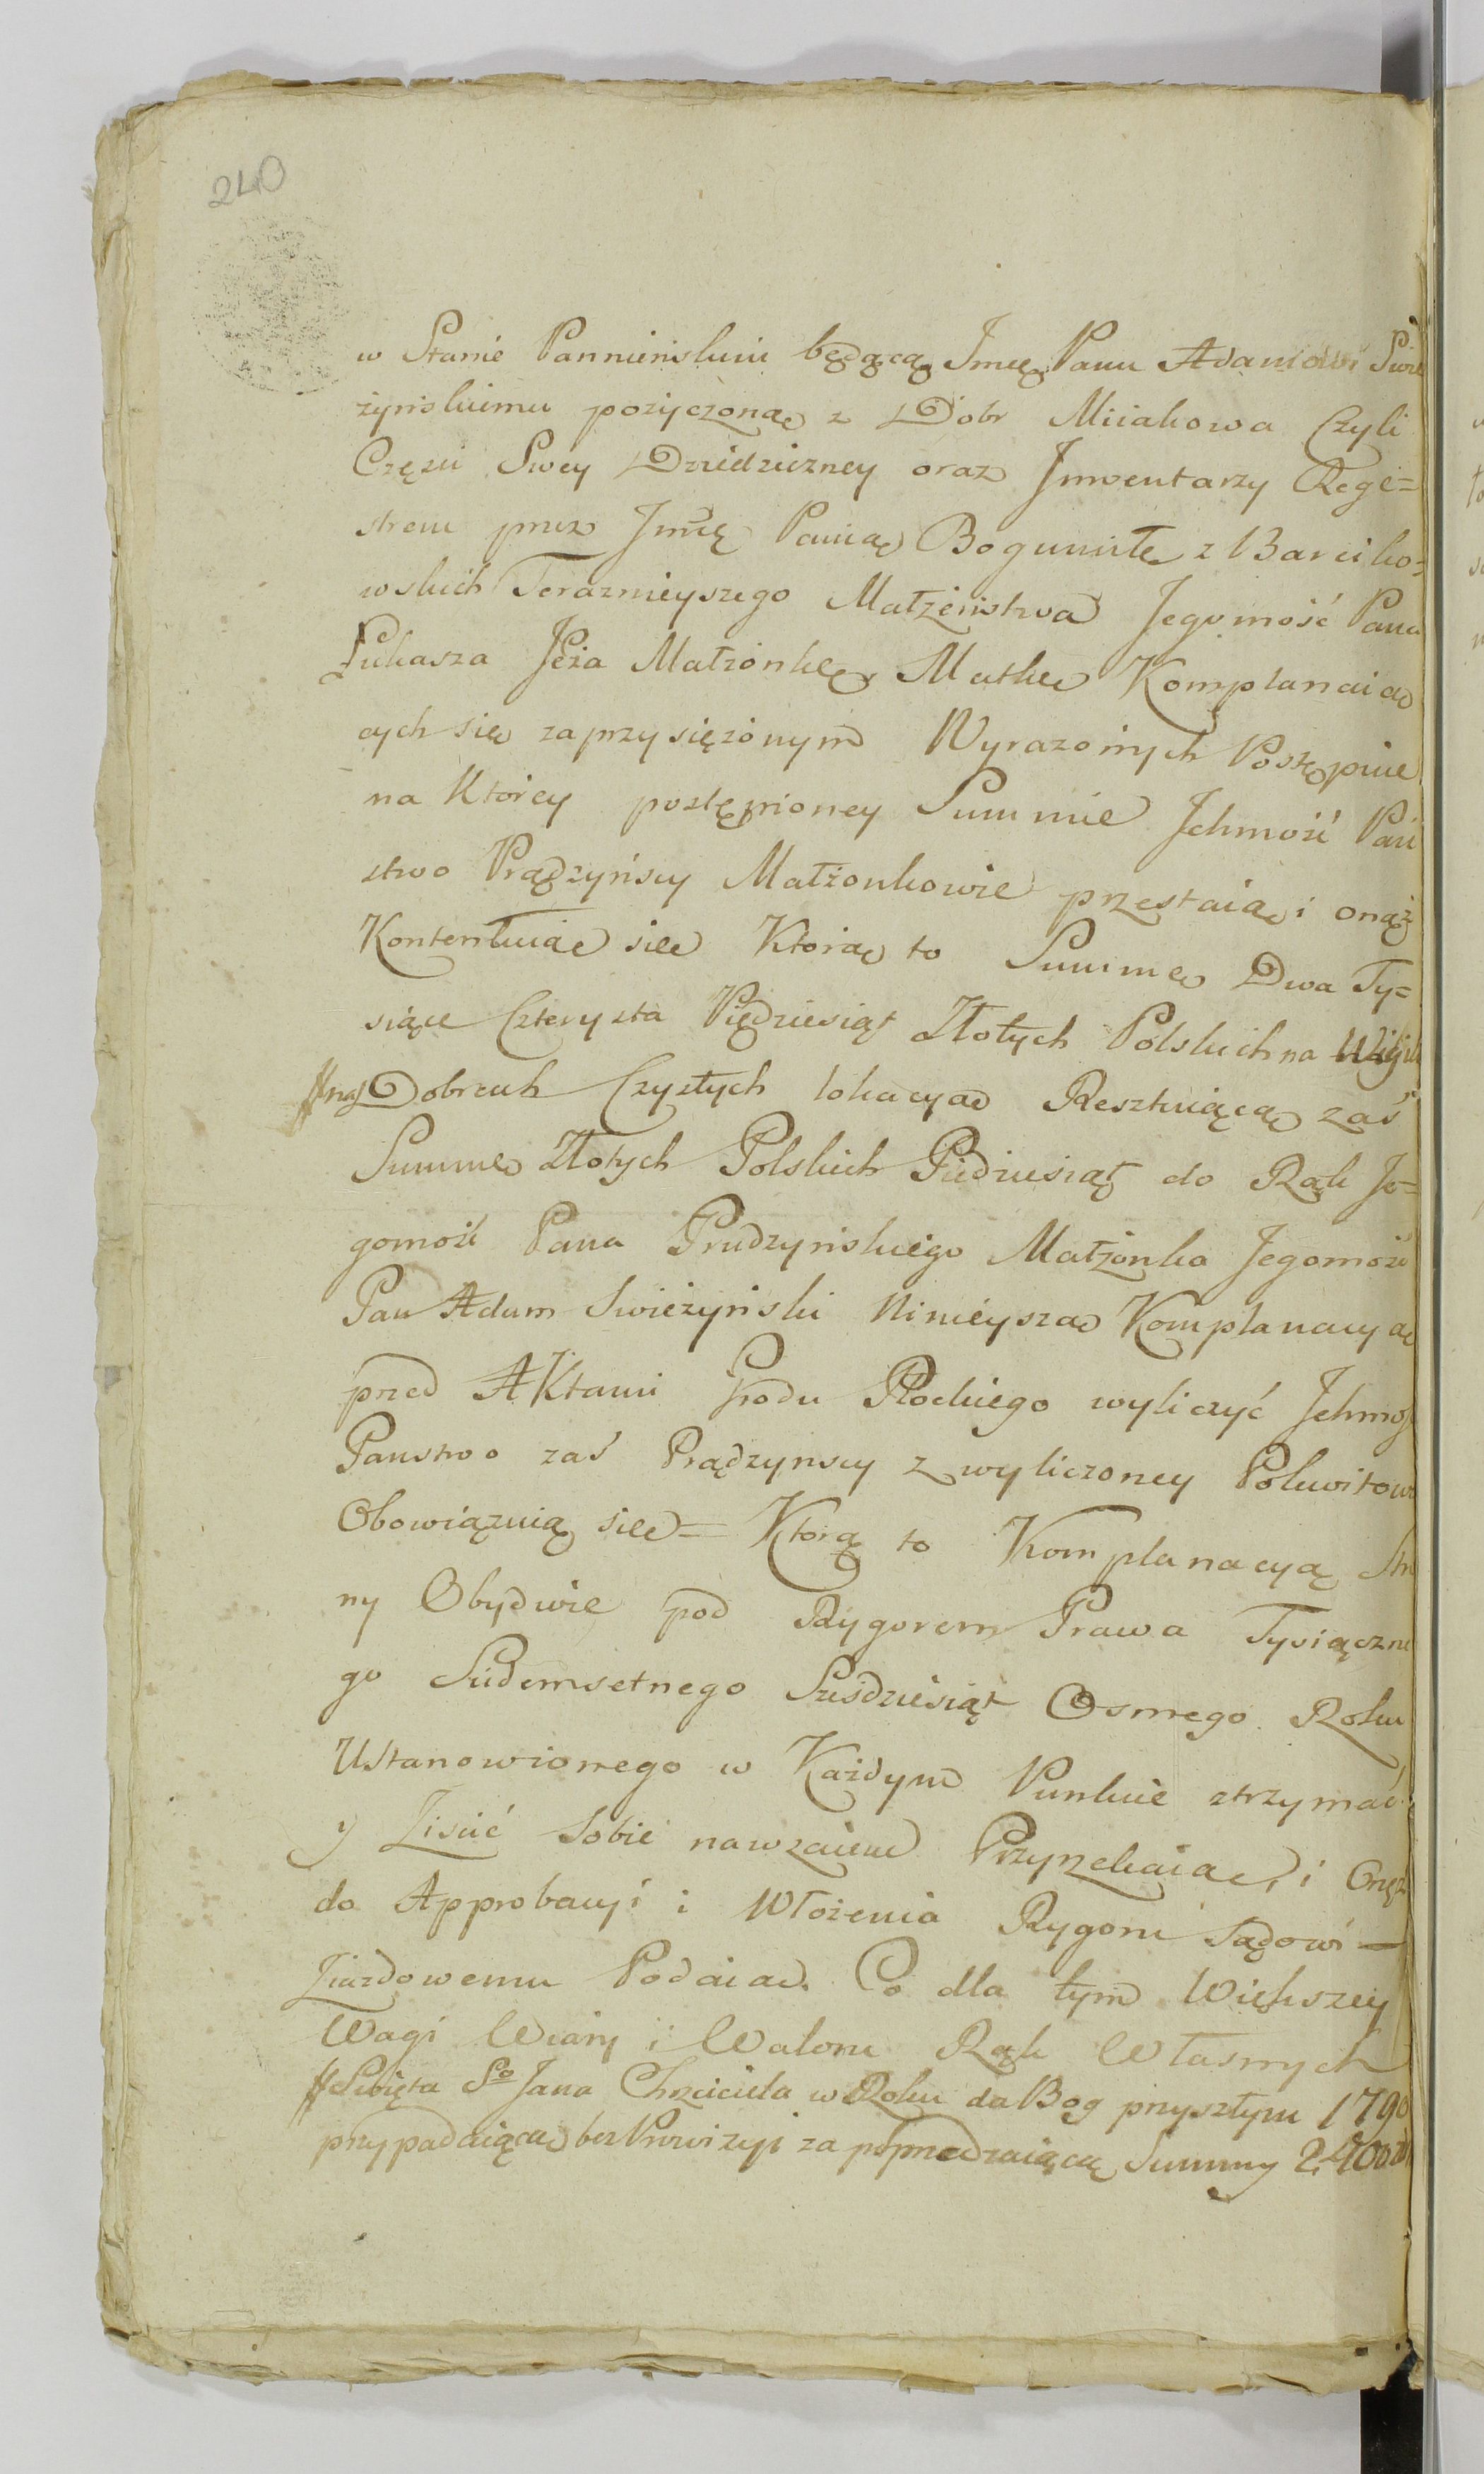 240
w Stanie Pannienskim będącą Imcę Panu Adamowi Swie
żyńskiemu pożyczoną z Dobr Miiakowa Czyli
Częsci Swey Dziedziczney oraz Inwentarzy Rege=
strem przez Jmcę Panią Bogumiłę z Barciko=
wskich Terazniejszego Małżeństwa Jegomość Pana
Łukasza Jeża Małżonkę Matkę Komplanuią
cych się zaprzysiężonym Wyrazonych Postępuie
na Ktorey postąpioney Summie Ichmość Pań
stwo Prądzyńscy Małżonkowie przestaią i onąż
Kontentuią się Ktorą to Summę Dwa Ty=
siące Czterysta Piędziesiąt Złotych Polskich na
na Dobrach Czystych lokacyą Resztuiącą zaś
Summę Złotych Polskich Piędziesiąt do Rąk Je=
gomość Pana Prudzyńskiego Małżonka Jegomość
Pan Adam Swieżyński Ninieyszą Komplanacyą
przed Aktami Grodu Płockiego wyliczyć Ichmość
Panstwo zaś Prądzynscy z wyliczoney Pokwitow
Obowiązuią się = Ktorą to Komplanacyą Stro
ny Obydwie pod Rygorem Prawa Tysiączne
go Siedemsetnego Sześdziesiąt Osmego Roku
Ustanowionego w Każdym Punkcie strzymać
y Ziścić Sobie nawzaiem Przyrzekaią, i Onęż
do Approbacyi i Włożenia Rygoru Sądowi
Ziazdowemu Podaią. Co dla tym Większey
Wagi Wiary i Waloru Rąk Własnych
Swięta So Jana Chrzciciela w Roku da Bog przyszłym 1790
przypadaiącą bez Prowizyi za poprzedzaiącą Summy 2400